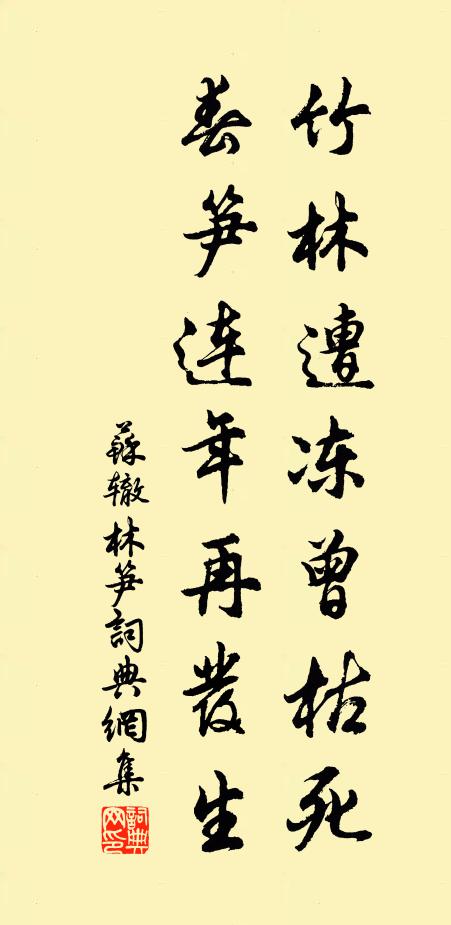 竹林遭冻曾枯死
春笋连年再發生
蘇辙林笋詞典網集
詞典网印